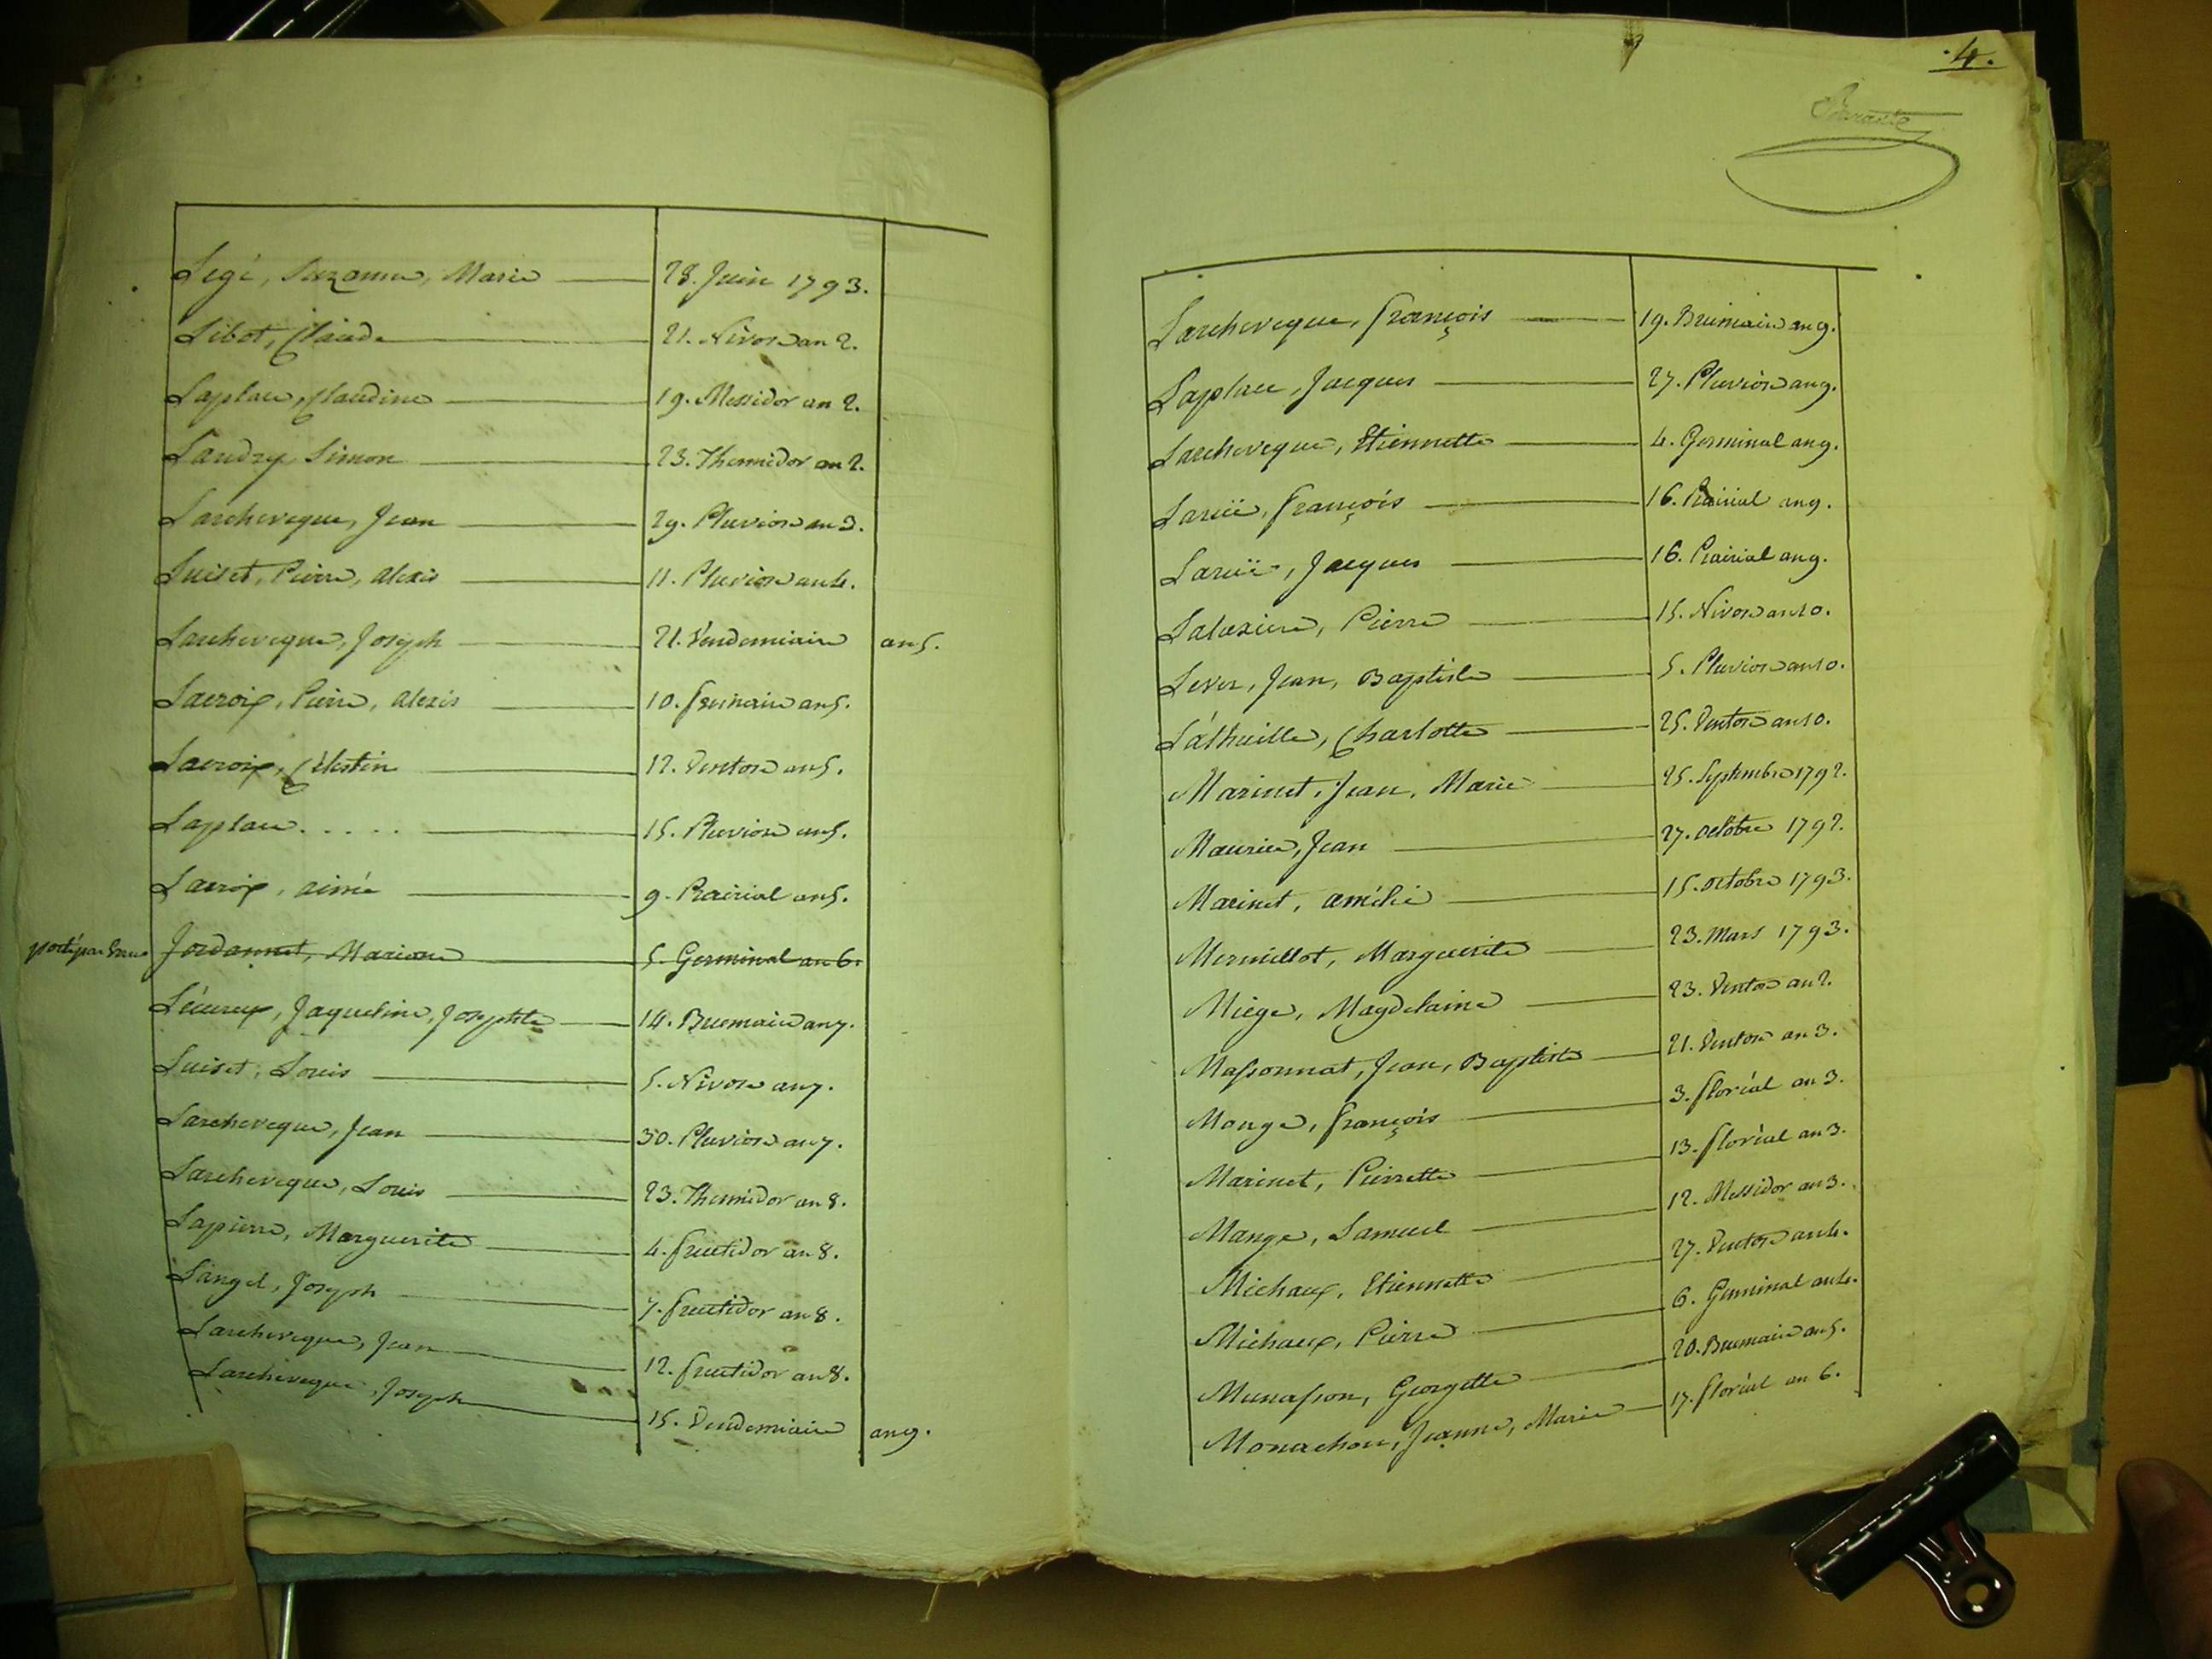 Legé, Suzanne, Marie 28. Juin 1793.
Libot, Claude 21. Nivose an 2.
Laplace, Claudine 19. Messidor an 2.
Landry Simon 23. Thermidor an 2.
Larcheveque, Jean 29. Pluviose an 3.
Luiset, Pierre, alexis 11. Pluviose an 4.
Larcheveque, Joseph 21. Vendemiaire an 5.
Lacroix, Pierre, alexis 10. frimaire an 5.
Lacroix, Célestin 12. Ventose an 5.
Laplace..... 15. Pluviose an 5.
Lacroix, aimée 9. Prairial an 5.
porté par Erreur Jordannet, Marianne 5. Germinal an 6.
Lécureux, Jaqueline, Josephte 14. Brumaire an 7.
Luiset, Louis 5. Nivose an 7.
Larcheveque, Jean 30. Pluviose an 7.
Larcheveque, Louis 23. Thermidor an 8.
Lapierre, Marguerite 4. fructidor an 8.
Langel, Joseph 7. fructidor an 8.
Larcheveque, Jean 12. fructidor an 8.
Larcheveque, Joseph 15. Vendemiaire an 9.
.4.
Larcheveque, françois 19. Brumaire an 9.
Laplace, Jacques 27. Pluviose an 9.
Larcheveque, Etiennette 4. Germinal an 9.
Laruë, françois 16. Prairial an 9.
Laruë, Jacques 16. Prairial an 9.
Pierre 15. Nivose an 10.
Lever, Jean, Baptiste 5. Pluviose an 10.
Láthuille, Charlotte 25. Ventose an 10.
Marinet, Jean, Marie 25. Septembre 1792.
Maurice, Jean 27. octobre 1792.
Marinet, amélie 15. octobre 1793.
Mermillot, Marguerite 23. Mars 1793.
Miege, Magdelaine 23. Ventose an 2.
Massonnat, Jean, Baptiste 21. Ventose an 3.
Monge, françois 3. floréal an 3.
Marinet, Pierrette 13. floréal an 3.
Mange, Samuel 12. Messidor an 3.
Michaux, Etiennette 27. Ventose an 4.
Michaux, Pierre 6. Germinal an 4.
Georgette 20. Brumaire an 5.
Monachon, Jeanne, Marie 17. floréal an 6.